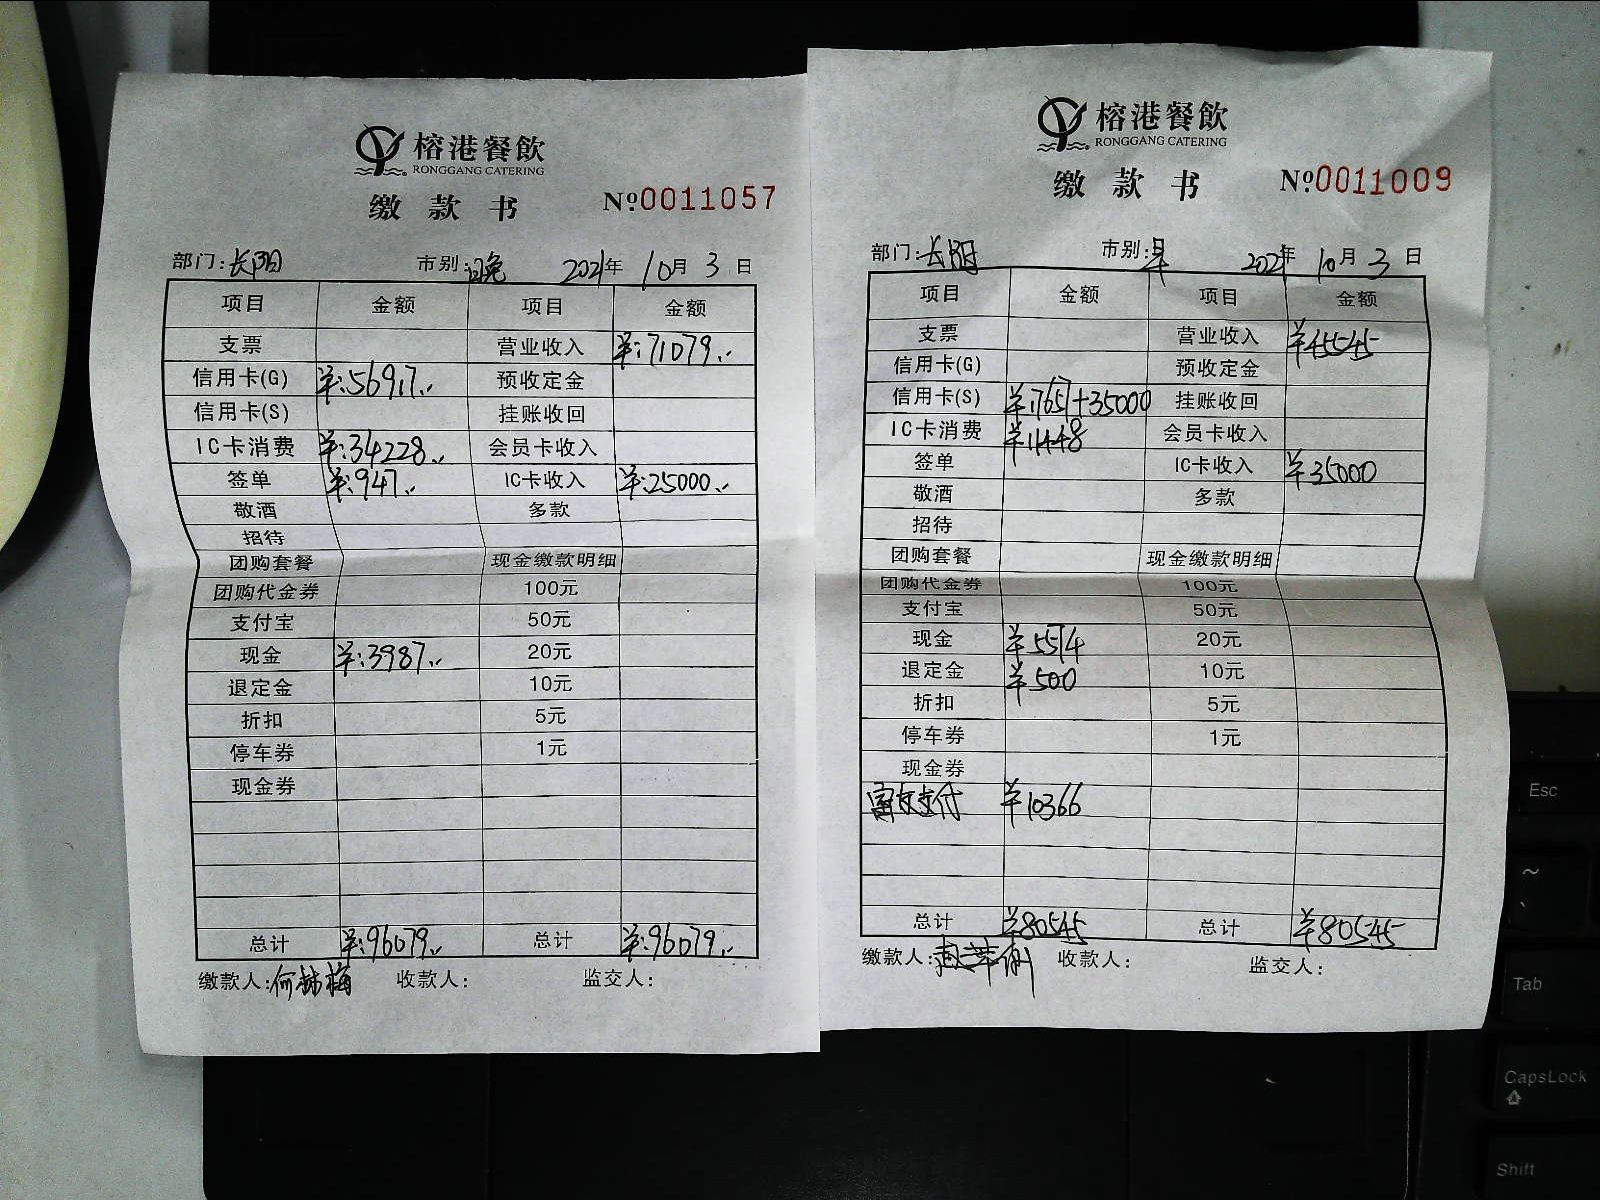 榕港餐飲
RONGGANG CATERING
缴款书
№0011057
部门:长阳 市别:晚 2021年 10月 3日
项目 金额 项目 金额
支票 营业收入 ¥:71079.
信用卡(G) ¥:56917. 预收定金
信用卡(S) 挂账收回
IC卡消费 ¥:34228. 会员卡收入
签单 ¥:947. IC卡收入 ¥:25000.
敬酒 多款
招待
团购套餐 现金缴款明细
团购代金券 100元
支付宝 50元
现金 ¥:3987. 20元
退定金 10元
折扣 5元
停车券 1元
现金券
总计 ¥:96079. 总计 ¥:96079.
缴款人: 收款人: 监交人:
榕港餐飲
RONGGANG CATERING
缴款书
№0011009
部门:长阳 市别:早 2021年 10月 3日
项目 金额 项目 金额
支票 营业收入 ¥45545
信用卡(G) 预收定金
信用卡(S) ¥17657+35000 挂账收回
IC卡消费 ¥11448 会员卡收入
签单 IC卡收入 ¥35000
敬酒 多款
招待
团购套餐 现金缴款明细
团购代金券 100元
支付宝 50元
现金 ¥5574 20元
退定金 ¥500 10元
折扣 5元
停车券 1元
现金券
富友支付 ¥10366
总计 ¥80545 总计 ¥80545
缴款人: 收款人: 监交人:
Esc
~
Tab
CapsLock
Shift